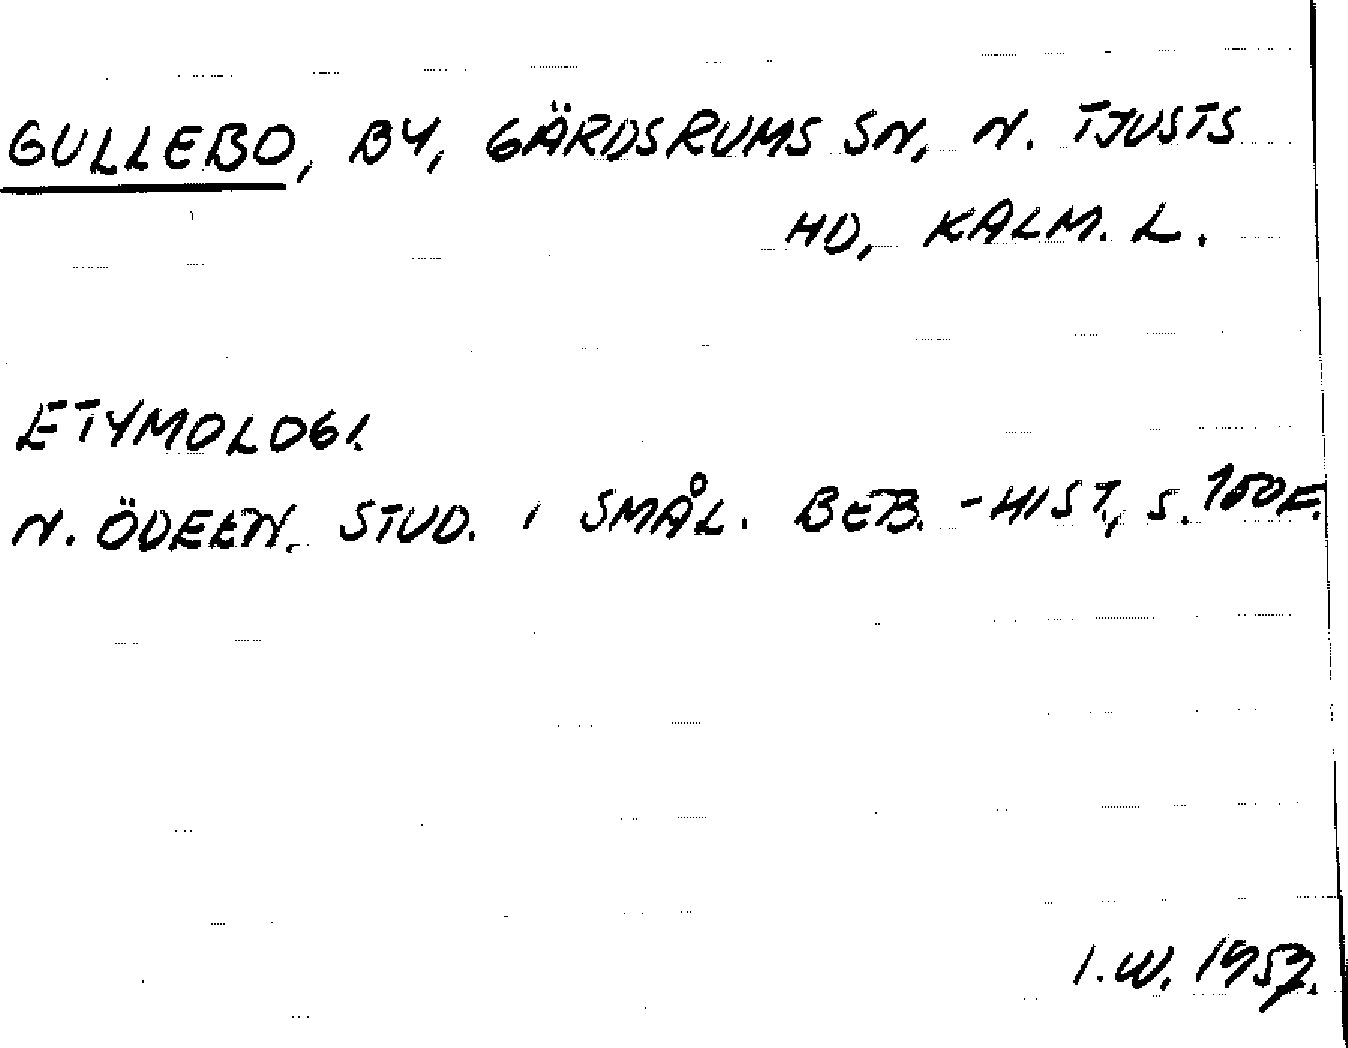 GULLEBO, BY, GÄRDSRUMS SN, N. TJUSTS
HD, KALM. L.
ETYMOLOGI.
N. ÖDEEN, STUD. I SMÅL. BEB.-HIST, S. 150 F.
I.W. 1957.